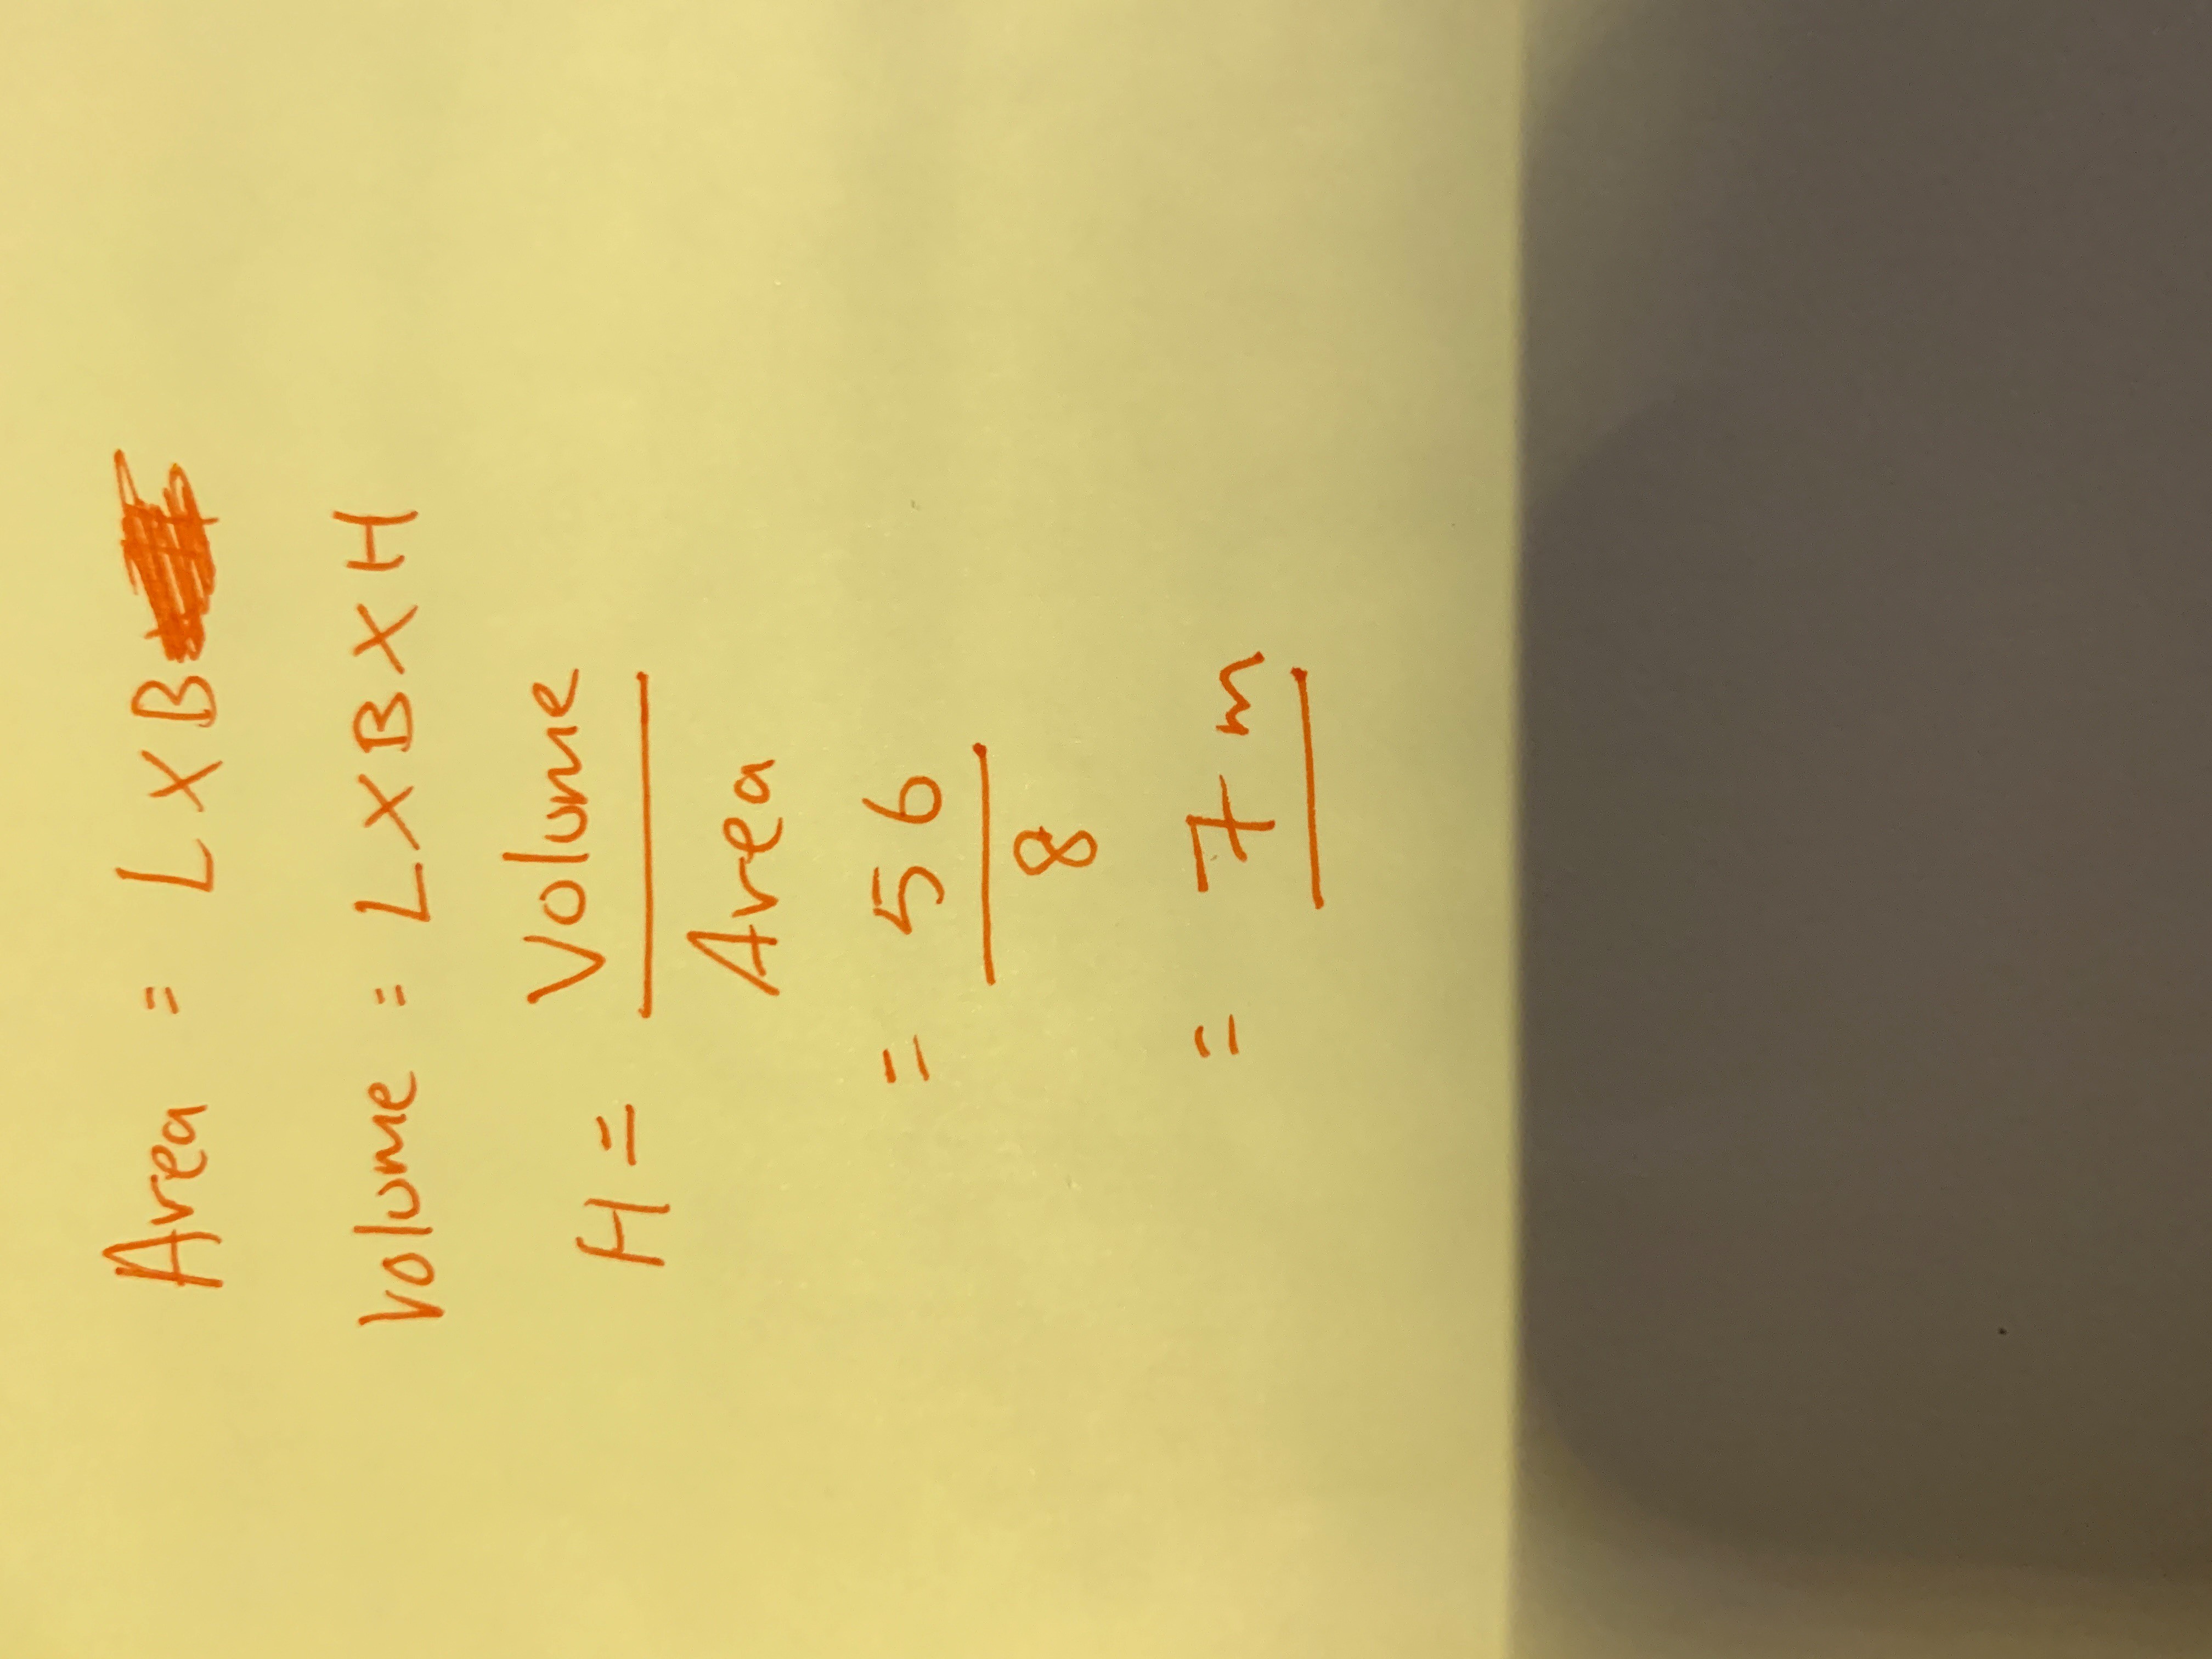 Area = L X B
Volume = L X B X H
H = Volume
Area
= 56
8
= 7 m